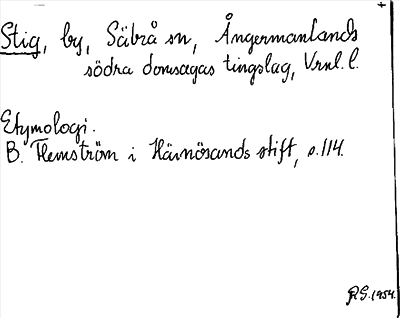 Stig, by, Säbrå sn, Ångermanlands
södra domsagas tingslag, Vrnl. l.
Etymologi.
B. Flemström i Härnösands stift, s. 114.
RS. 1954.